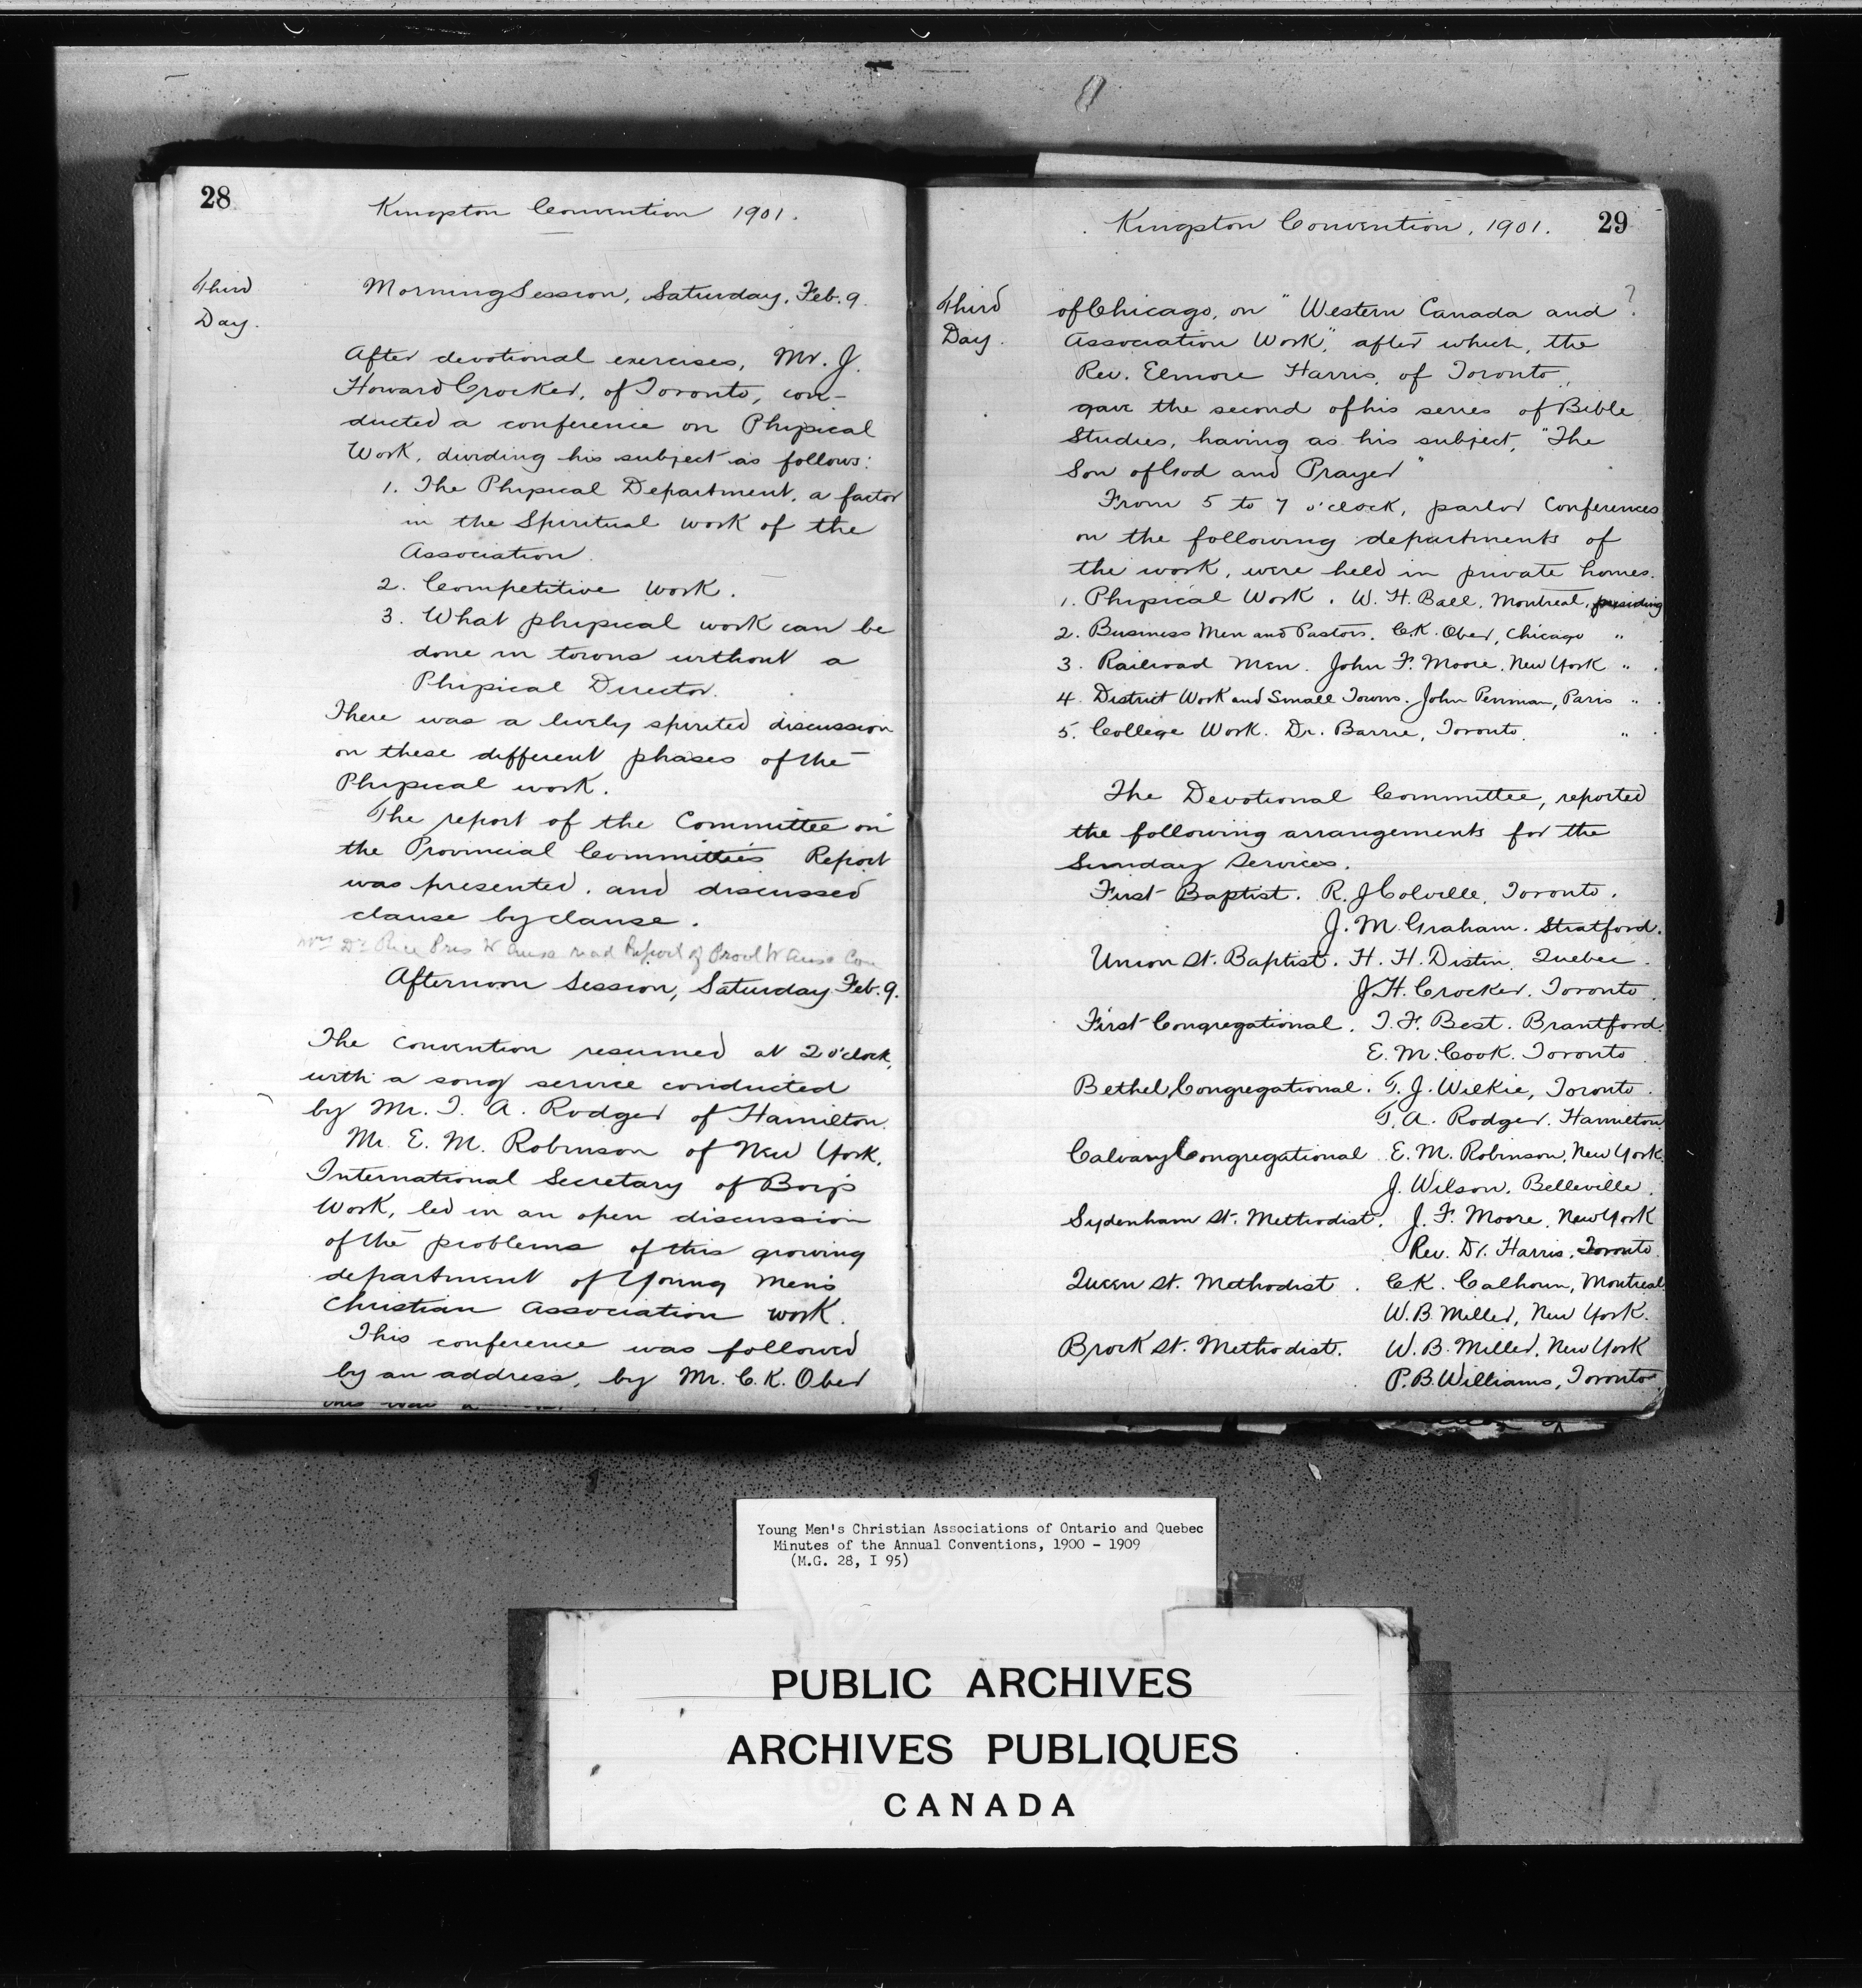 28
Kingston Convention 1901.
Third
Day.
Morning Session, Saturday, Feb. 9.
After devotional exercises, Mr. J.
Howard Crocker, of Toronto, con-
ducted a conference on Physical
Work, dividing his subject as follows:
1. The Physical Department, a factor
in the Spiritual work of the
Association.
2. Competitive work.
3. What physical work can be
done in towns without a
Physical Director.
There was a lively spirited discussion
on these different phases of the
Physical work.
The report of the Committee on
the Provincial Committee's Report
was presented, and discussed
clause by clause.
Mrs Dr Rice Pres W read Report of Com
Afternoon Session, Saturday Feb. 9.
The convention resumed at 2 o'clock,
with a song service conducted
by Mr. T. A. Rodger of Hamilton.
Mr. E. M. Robinson of New York,
International Secretary of Boys
Work, led in an open discussion
of the problems of this growing
department of Young Men's
Christian Association work.
This conference was followed
by an address, by Mr. C. K. Ober
Kingston Convention, 1901.
29
Third
Day.
of Chicago, on "Western Canada and ?
Association Work", after which, the
Rev. Elmore Harris, of Toronto,
gave the second of his series of Bible
Studies, having as his subject, "The
Son of God and Prayer"
From 5 to 7 o'clock, parlor Conferences
on the following departments of
the work, were held in private homes.
1. Physical Work. W. H. Ball, Montreal, presiding
2. Business Men and Pastors. C. K. Ober, Chicago "
3. Railroad Men. John F. Moore, New York "
4. District Work and Small Towns. John Penman, Paris "
5. College Work. Dr. Barrie, Toronto. "
The Devotional Committee, reported
the following arrangements for the
Sunday Services.
First Baptist. R. J Colville, Toronto.
J. M. Graham. Stratford.
Union St. Baptist. H. H. Distin, Quebec.
J. H. Crocker. Toronto.
First Congregational. T. F. Best. Brantford.
E. M. Cook. Toronto.
Bethel Congregational. T. J. Wilkie, Toronto.
T. A. Rodger. Hamilton
Calvary Congregational E. M. Robinson, New York.
J. Wilson, Belleville.
Sydenham St. Methodist. J. F. Moore, New York
Rev. Dr. Harris, Toronto.
Queen St. Methodist. C. K. Calhoun, Montreal
W. B. Miller, New York.
Brock St. Methodist. W. B. Miller, New York
P. B. Williams, Toronto.
Young Men's Christian Associations of Ontario and Quebec
Minutes of the Annual Conventions, 1900 - 1909
(M.G. 28, I 95)
PUBLIC ARCHIVES
ARCHIVES PUBLIQUES
CANADA